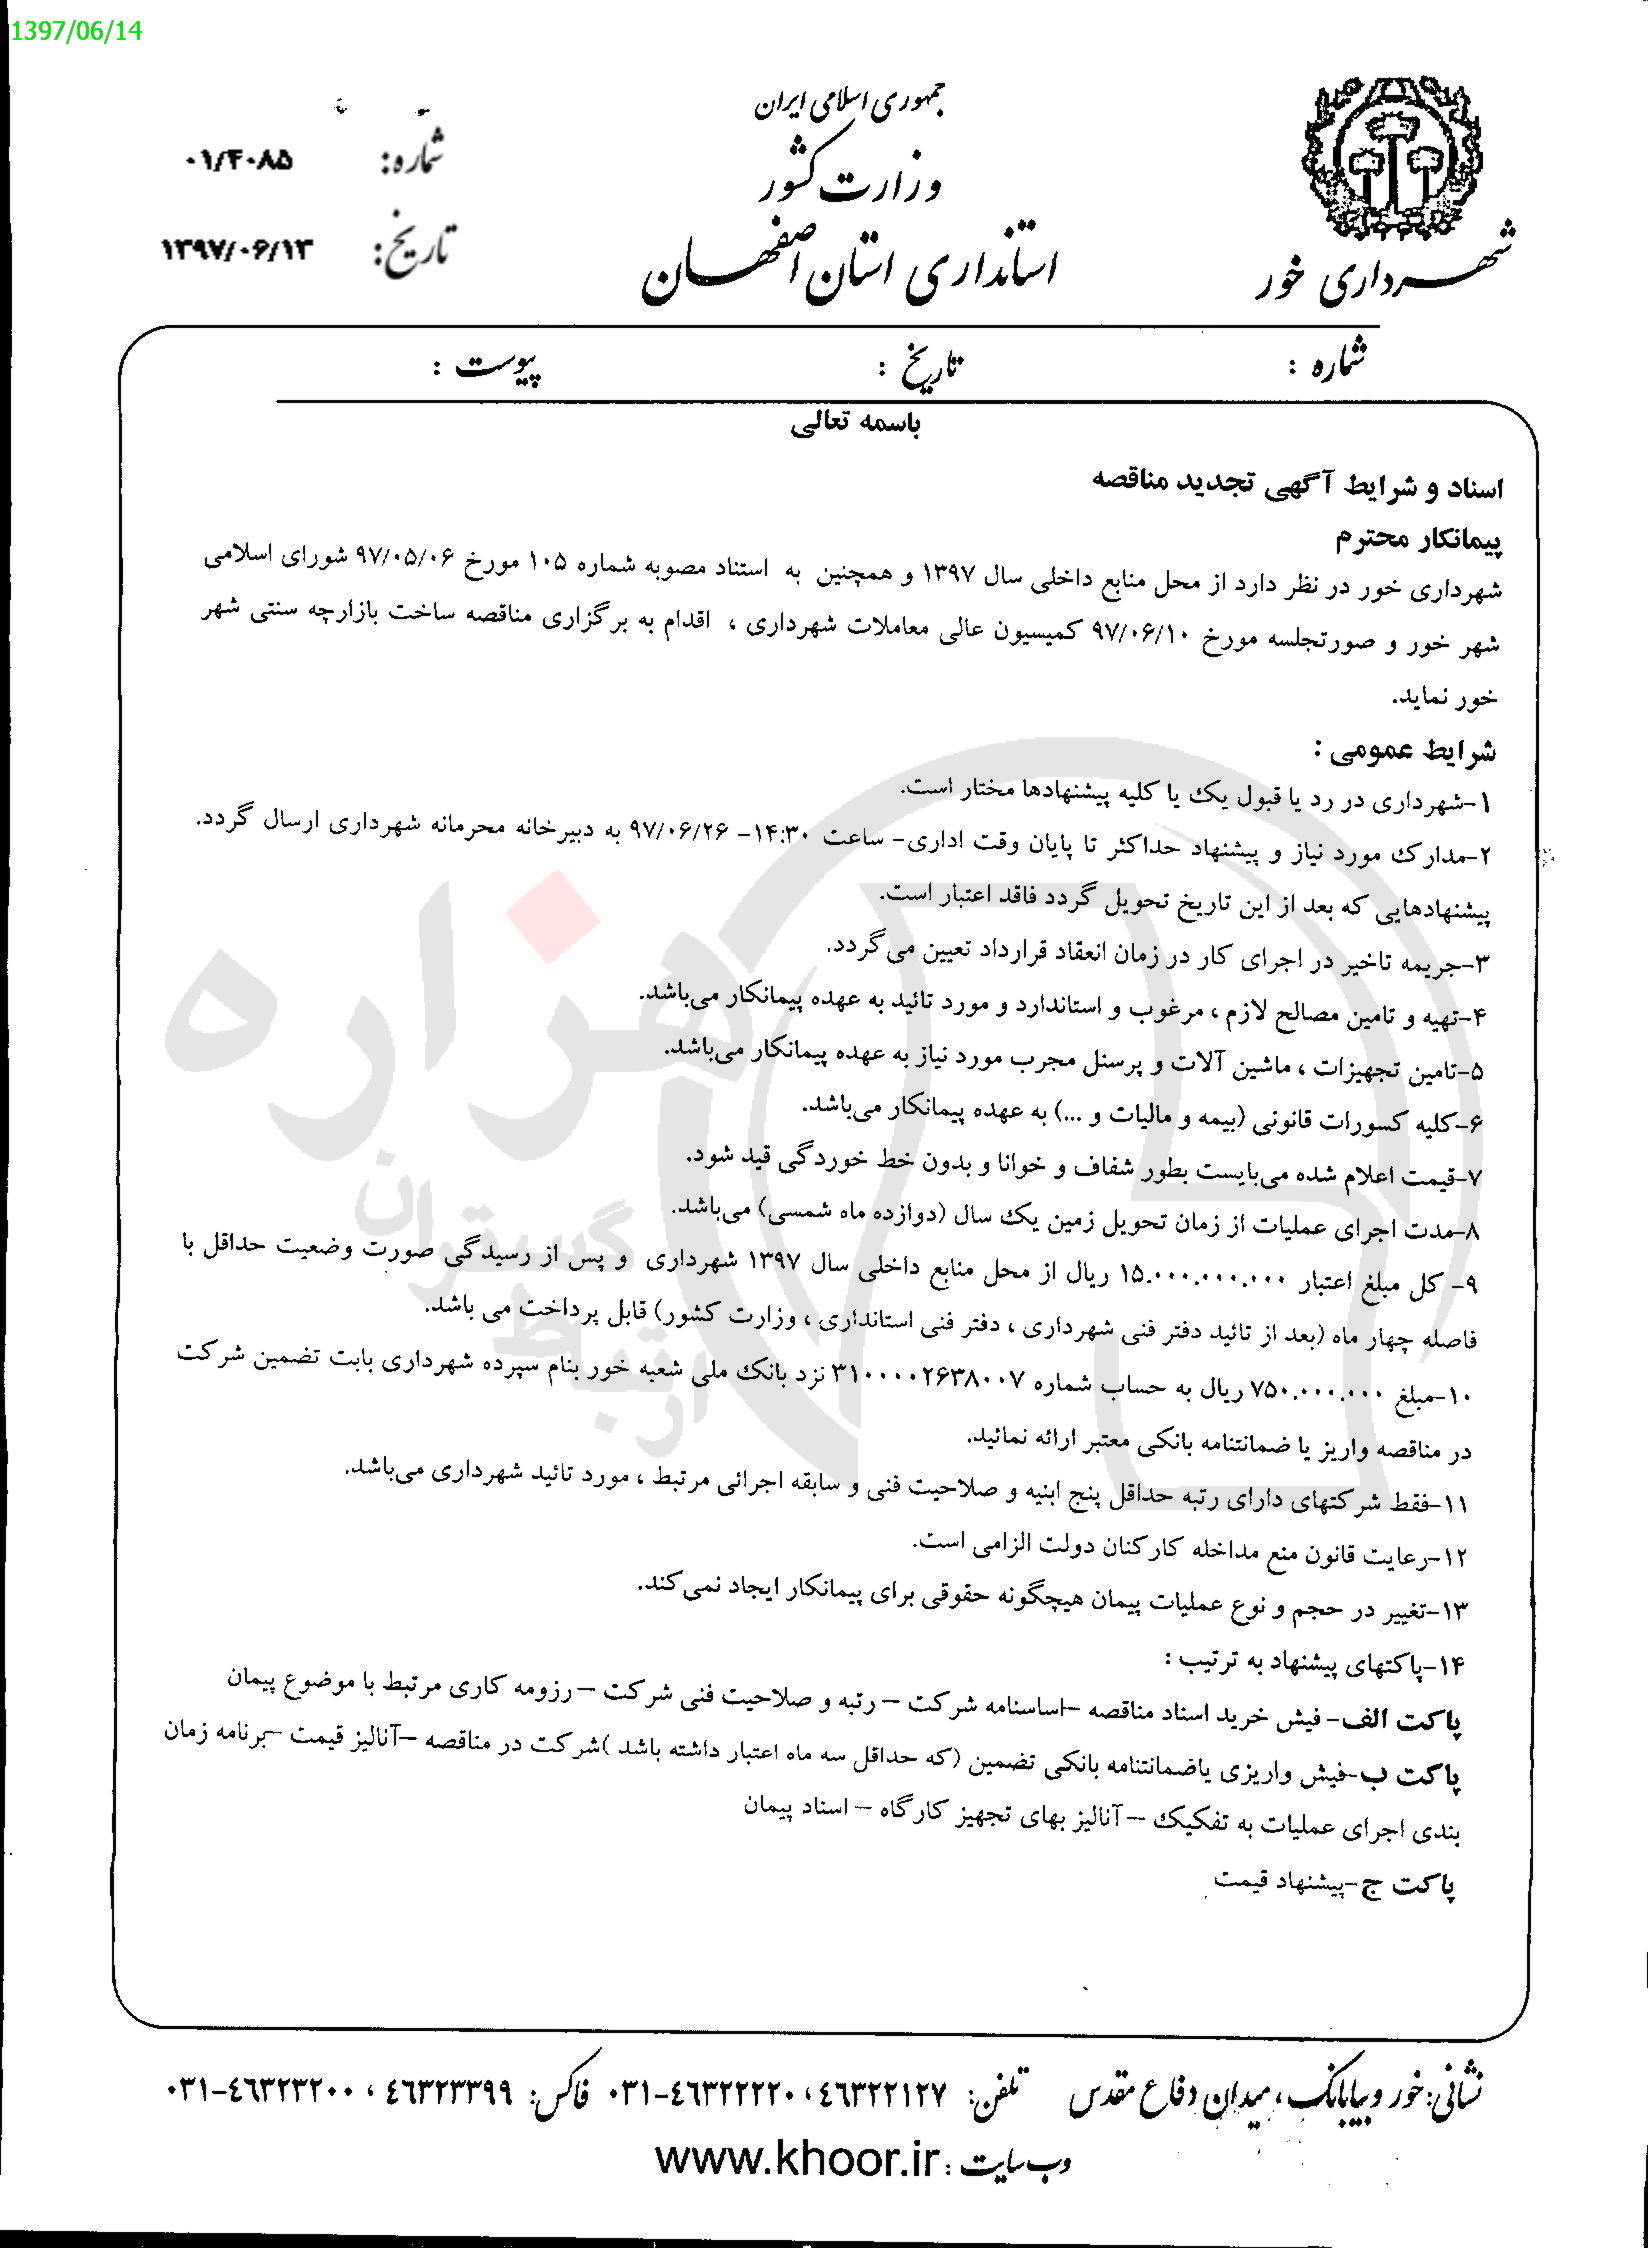 1397/06/14
جمهوری اسلامی ایران
وزارت کشور
استانداری استان اصفهان
شهرداری خور
شماره: ۰۱/۴۰۸۵
تاریخ: ۱۳۹۷/۰۶/۱۳
شماره : تاریخ : پیوست :
باسمه تعالی
اسناد و شرایط آگهی تجدید مناقصه
پیمانکار محترم
شهرداری خور در نظر دارد از محل منابع داخلی سال ۱۳۹۷ و همچنین به استناد مصوبه شماره ۱۰۵ مورخ ۹۷/۰۵/۰۶ شورای اسلامی
شهر خور و صورتجلسه مورخ ۹۷/۰۶/۱۰ کمیسیون عالی معاملات شهرداری ، اقدام به برگزاری مناقصه ساخت بازارچه سنتی شهر
خور نماید.
شرایط عمومی :
۱-شهرداری در رد یا قبول یک یا کلیه پیشنهادها مختار است.
۲-مدارک مورد نیاز و پیشنهاد حداکثر تا پایان وقت اداری- ساعت ۱۴:۳۰- ۹۷/۰۶/۲۶ به دبیرخانه محرمانه شهرداری ارسال گردد.
پیشنهادهایی که بعد از این تاریخ تحویل گردد فاقد اعتبار است.
۳-جریمه تاخیر در اجرای کار در زمان انعقاد قرارداد تعیین می‌گردد.
۴-تهیه و تامین مصالح لازم ، مرغوب و استاندارد و مورد تائید به عهده پیمانکار می‌باشد.
۵-تامین تجهیزات ، ماشین آلات و پرسنل مجرب مورد نیاز به عهده پیمانکار می‌باشد.
۶-کلیه کسورات قانونی (بیمه و مالیات و ...) به عهده پیمانکار می‌باشد.
۷-قیمت اعلام شده می‌بایست بطور شفاف و خوانا و بدون خط خوردگی قید شود.
۸-مدت اجرای عملیات از زمان تحویل زمین یک سال (دوازده ماه شمسی) می‌باشد.
۹- کل مبلغ اعتبار ۱۵.۰۰۰.۰۰۰.۰۰۰ ریال از محل منابع داخلی سال ۱۳۹۷ شهرداری و پس از رسیدگی صورت وضعیت حداقل با
فاصله چهار ماه (بعد از تائید دفتر فنی شهرداری ، دفتر فنی استانداری ، وزارت کشور) قابل پرداخت می باشد.
۱۰-مبلغ ۷۵۰.۰۰۰.۰۰۰ ریال به حساب شماره ۳۱۰۰۰۰۲۶۳۸۰۰۷ نزد بانک ملی شعبه خور بنام سپرده شهرداری بابت تضمین شرکت
در مناقصه واریز یا ضمانتنامه بانکی معتبر ارائه نمائید.
۱۱-فقط شرکتهای دارای رتبه حداقل پنج ابنیه و صلاحیت فنی و سابقه اجرائی مرتبط ، مورد تائید شهرداری می‌باشد.
۱۲-رعایت قانون منع مداخله کارکنان دولت الزامی است.
۱۳-تغییر در حجم و نوع عملیات پیمان هیچگونه حقوقی برای پیمانکار ایجاد نمی‌کند.
۱۴-پاکتهای پیشنهاد به ترتیب :
پاکت الف- فیش خرید اسناد مناقصه –اساسنامه شرکت – رتبه و صلاحیت فنی شرکت – رزومه کاری مرتبط با موضوع پیمان
پاکت ب-فیش واریزی یاضمانتنامه بانکی تضمین (که حداقل سه ماه اعتبار داشته باشد )شرکت در مناقصه –آنالیز قیمت –برنامه زمان
بندی اجرای عملیات به تفکیک – آنالیز بهای تجهیز کارگاه – اسناد پیمان
پاکت ج-پیشنهاد قیمت
نشانی: خور و بیابانک، میدان دفاع مقدس تلفن: ٤٦٣٢٢١٢٧ ، ٠٣١-٤٦٣٢٢٢٢٠ فاکس: ٤٦٣٢٣٣٩٩ ، ٠٣١-٤٦٣٢٣٢٠٠
وب سایت : www.khoor.ir
هزاره